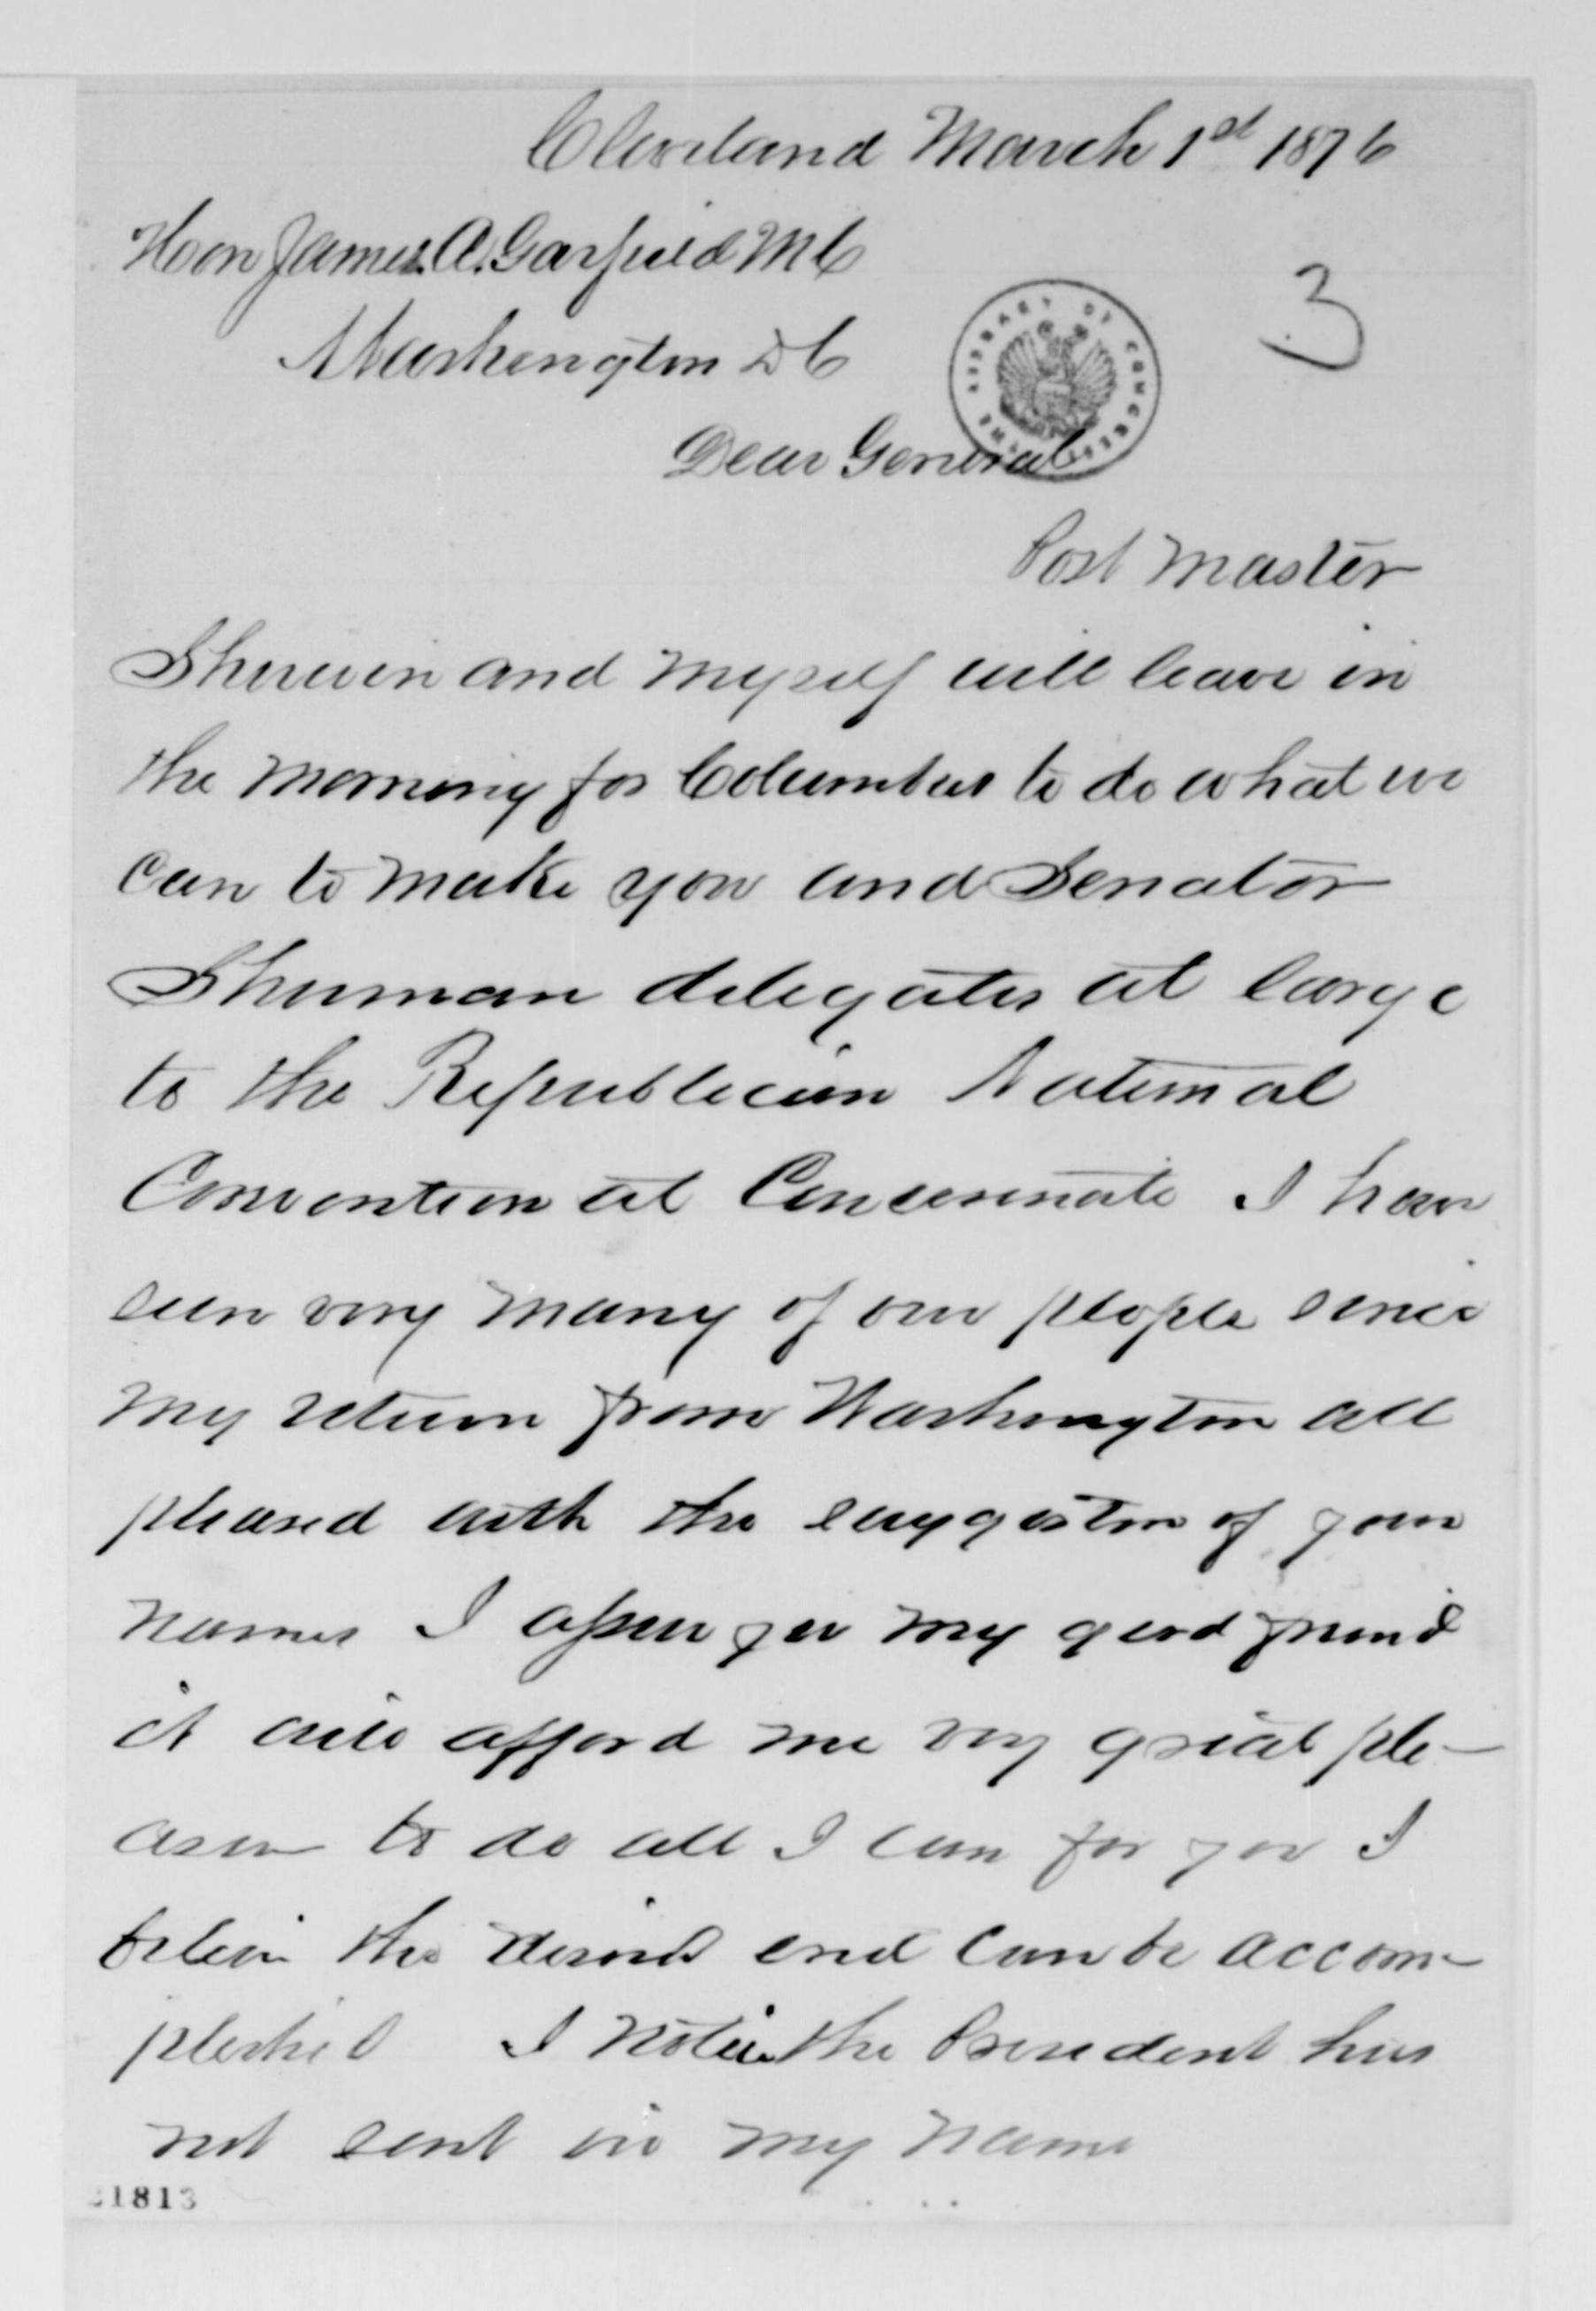 Cleveland March 1st 1876
Hon James. A. Garfield M C
3
Washington D C
THE LIBRARY OF CONGRESS
Dear General
Post Master
Sherwin and myself will leave in
the morning for Columbus to do what we
can to make you and Senator
Sherman delegates at large
to the Republican National
Convention at Cincinnati I have
seen very many of our people since
my return from Washington all
pleased with the suggestion of your
names I assure you my good friend
it will afford me very great ple-
asure to do all I can for you I
beleive the desired end can be accom-
plished I notice the President has
not sent in my name
21813